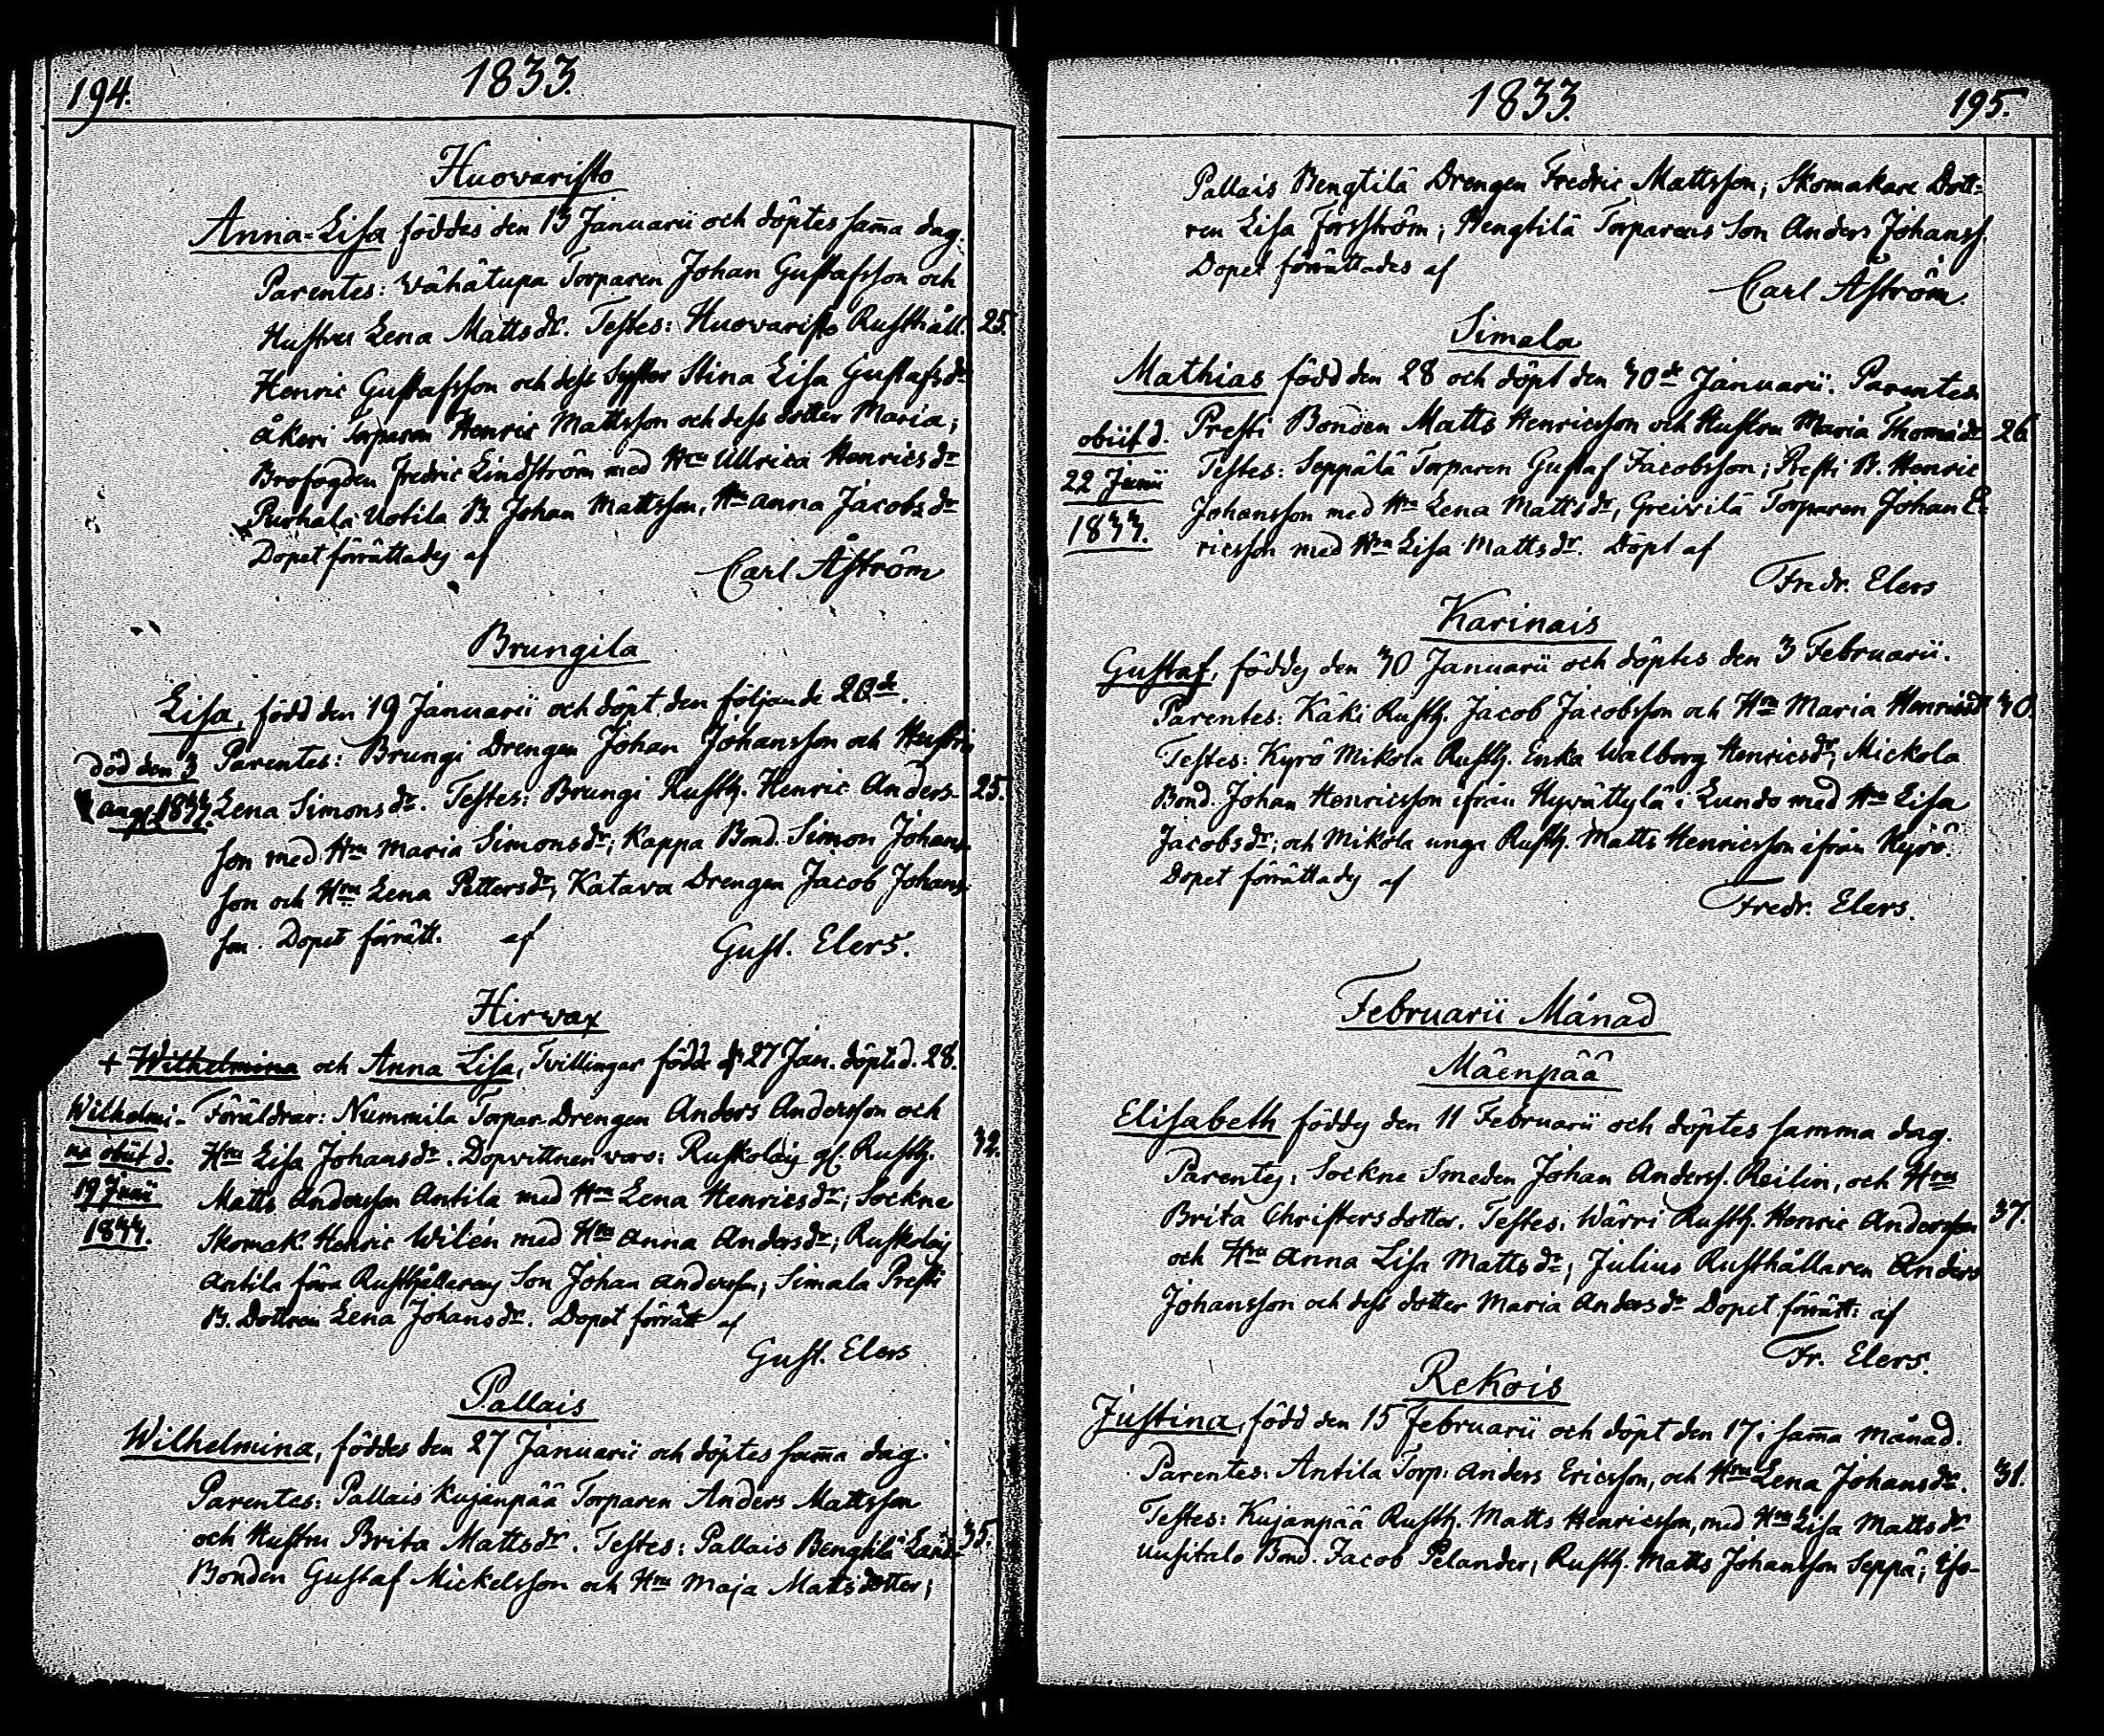 194.
1833.
Huovaristo
Anna-Lisa föddes den 13 Januarii och döptes sam̄a dag.
Parentes: Wähätupa Torparen Johan Gustafsson och
Hustru Lena Mattsdr. Testes: Huovaristo Rusthåll. 25.
Henric Gustafsson och dess Syster Stina Lisa Gustafsdr
Åkeri Torparen Henric Mattsson och dess dotter Maria;
Brofogden Fredric Lindström med Hru Ullrica Henricsdr
Purhala Uotila B. Johan Mattsson, Hru Anna Jacobsdr
Dopet förrättades af
Carl Åström
Brungila
Lisa, född den 19 Januarii och döpt den följande 20de.
död den 3
aug. 1833.
Parentes: Brungi Drengen Johan Johansson och Hustru
Lena Simonsdr. Testes: Brungi Rusth. Henric Anders- 25.
son med Hru Maria Simonsdr; Kappa Bond. Simon Johans-
son och Hru Lena Pettersdr; Katava Drengen Jacob Johans-
son. Dopet förrätt. af
Gust. Elers.
Hirwax
+ Wilhelmina och Anna Lisa, Tvillingar född d. 27 Jan. döpt d. 28.
Wilhelmi-
na obiit d.
19 Junii
1833.
Föräldrar: Nummila Torpar-Drengen Anders Andersson och
Hru Lisa Johansdr. Dopvittnen woro: Ruskolaig gl. Rusth. 32.
Matts Andersson Antila med Hru Lena Henricsdr; Sockne
Skomak. Henric Wilén med Hru Anna Andersdr; Ruskolaig
Antila förra Rusthållarens Son Johan Andersson; Simala Presti
B. Dottren Lena Johansdr. Dopet förrätt af
Gust. Elers
Pallais
Wilhelmina, föddes den 27 Januarii och döptes sam̄a dag.
Parentes: Pallais Kujanpää Torparen Anders Mattsson
och Hustru Brita Mattsdr. Testes: Pallais Bengtilä Land- 35.
Bonden Gustaf Mickelsson och Hru Maja Mattsdotter;
1833.
195.
Pallais Bengtilä Drengen Fredric Mattsson; Skomakare Dott-
ren Lisa Forsström; Bengtilä Torparens Son Anders Johanss.
Dopet förrättades af
Carl Åström.
Simala
Mathias född den 28 och döpt den 30de Januarii. Parentes
obiit d.
22 Junii
1833.
Presti Bonden Matts Henricsson och Hustru Maria Thomædr 26.
Testes: Seppälä Torparen Gustaf Jacobsson; Presti B. Henric
Johansson med Hru Lena Mattsdr, Greivilä Torparen Johan E-
ricsson med Hru Lisa Mattsdr. Döpt af
Fredr. Elers
Karinais
Gustaf, föddes den 30 Januarii och döptes den 3 Februarii.
Parentes: Käki Rusth. Jacob Jacobsson och Hru Maria Henricsdr 30.
Testes: Kyrö Mikola Rusth. Enka Walborg Henricsdr, Mickola
Bond. Johan Henricsson ifrån Hyvättylä i Lundo med Hru Lisa
Jacobsdr; och Mikola unga Rusth. Matts Henricsson ifrån Kyrö.
Dopet förrättades af
Fredr. Elers.
Februarii Månad
Mäenpää
Elisabeth föddes den 11 Februarii och döptes samma dag.
Parentes: Sockne Smeden Johan Anderss. Reilin, och Hru
Brita Christersdotter. Testes: Wärri Rusth. Henric Andersson 37.
och Hru Anna Lisa Mattsdr; Julius Rusthållaren Anders
Johansson och dess dotter Maria Andersdr Dopet förrätt. af
Fr. Elers.
Rekois
Justina, född den 15 Februarii och döpt den 17 i sam̄a månad.
Parentes: Antila Torp. Anders Ericsson, och Hru Lena Johansdr. 31.
Testes: Kujanpää Rusth. Matts Henricsson, med Hru Lisa Mattsdr
Uusitalo Bond. Jacob Pelander; Rusth. Matts Johansson Seppä; Iso-